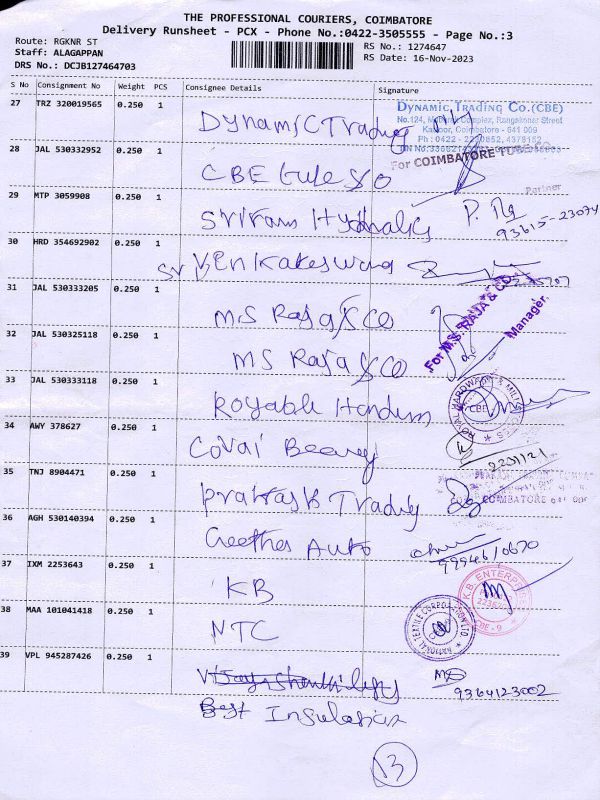 THE PROFESSIONAL COURIERS, COIMBATORE
Delivery Runsheet - PCX - Phone No.:0422-3505555 - Page No.:3
Route: RGKNR ST
Staff: ALAGAPPAN
DRS No.: DCJB127464703
RS No.: 1274647
RS Date: 16-Nov-2023
S No Consignment No Weight PCS Consignee Details Signature
27 TRZ 320019565 0.250 1 Dynamic Trading
DYNAMIC TRADING CO.(CBE)
Coimbatore - 641 009
28 JAL 530332952 0.250 1 CBE
For COIMBATORE
Partner
29 MTP 3059908 0.250 1 Sriram Hydraulics
93615-23074
30 HRD 354692902 0.250 1 Sri Venkateswara
31 JAL 530333205 0.250 1 MS Raja & Co
For M.S. RAJA & CO.
Manager.
32 JAL 530325118 0.250 1 MS Raja & Co
33 JAL 530333118 0.250 1
ROYAL HARDWARE & MILL STORES
CBE
34 AWY 378627 0.250 1 Covai
2201121
35 TNJ 8904471 0.250 1 Prakash Trading
COIMBATORE 641 009
36 AGH 530140394 0.250 1 Geetha Auto
99946/0670
37 IXM 2253643 0.250 1 KB
K.B. ENTERPRISES
CBE-9
38 MAA 101041418 0.250 1 NTC
NATIONAL TEXTILE CORPORATION LTD
39 VPL 945287426 0.250 1
9364123002
Best Insulation
13